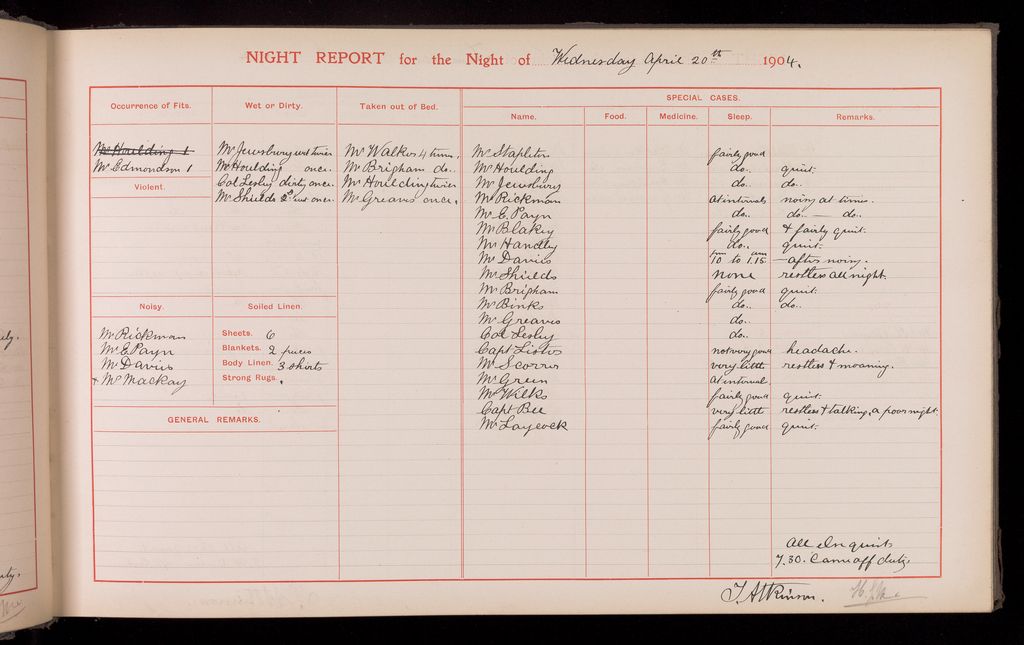 NIGHT REPORT for the Night of Wednesday April 20th 1904.
Occurrence of Fits.
Mr Houlding 1
Mr Edmondson 1
Violent.
Noisy.
Mr Rickman
Mr E Payn
Mr Davies
+ Mr Mackay
Wet or Dirty.
Mr Jewsbury wet twice
Mr Houlding once.
Col Lesley dirty once.
Mr Shields wet once.
Soiled Linen.
Sheets. 6
Blankets. 2 pieces
Body Linen. 3 shirts
Strong Rugs.
Taken out of Bed.
Mr Walker 4 times,
Mr Brigham do..
Mr Houlding twice
Mr Greaves once.
GENERAL REMARKS.
SPECIAL CASES.
Name. Food. Medicine. Sleep. Remarks.
Mr Stapleton fairly good
Mr Houlding do.. quiet.
Mr Jewsbury do.. do..
Mr Rickman at intervals noisy at times.
Mr E. Payn do.. do.. — do..
Mr Blakey fairly good & fairly quiet.
Mr Handley do.. quiet.
Mr Davies 10 pm to 1.15 am — after noisy.
Mr Shields none restless all night.
Mr Brigham fairly good quiet.
Mr Binks do.. do..
Mr Greaves do..
Col Lesley do..
Capt Lister not very good headache.
Mr Scorrer very little restless & moaning.
Mr Green at interval,
Mr Wilks fairly good quiet.
Capt Bee very little restless & talking, a poor night.
Mr Laycock fairly good quiet.
All Else quiet
7.30. Came off duty.
T. Atkinson.